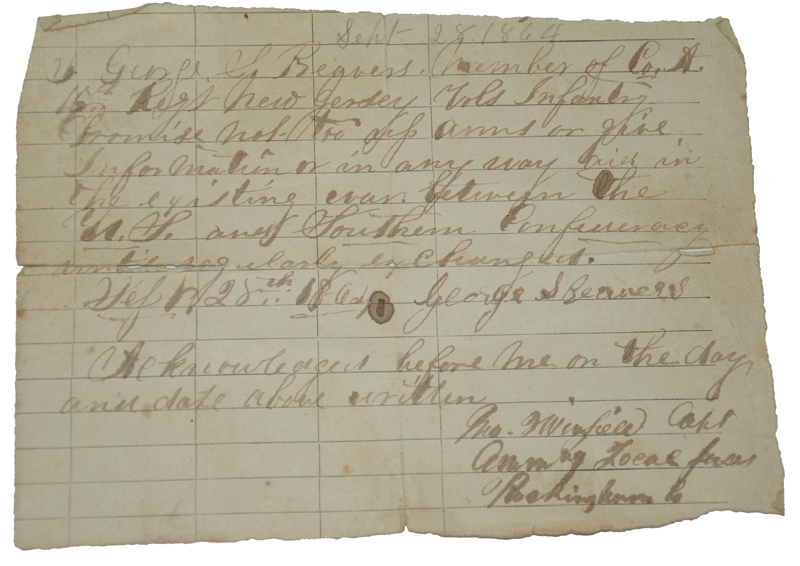 Sept 28 1864
I George S Beavers. Member of Co. A.
15th Regt New Jersey Vols Infantry
Promise not too up arms or give
Information or in any way aid in
The existing war between The
U. S. and Southern Confederacy
until regularly exchanged.
Sept 28th 1864 George S Beavers
Acknowledged before Me on the day
and date above written
Jno. Winfield Capt
Comm'g Local forces
Rockingham Co